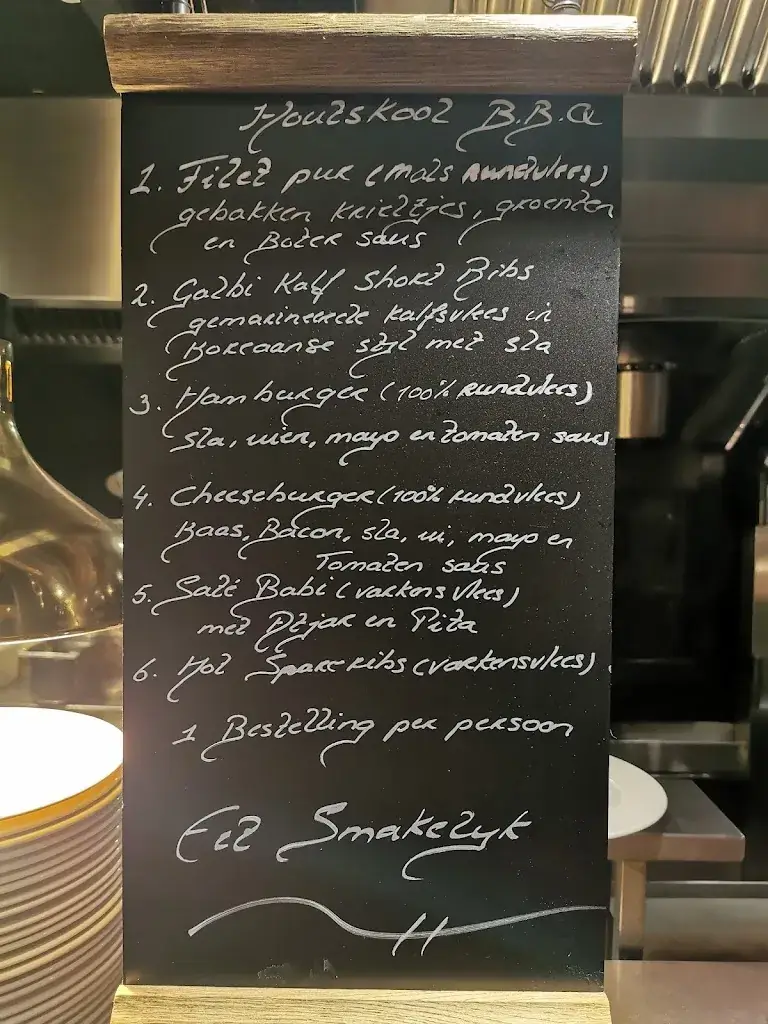 Houtskool B.B.Q
1. Filet pur (Mals Rundvlees)
gebakken krieltjes, groenten
en Boter saus
2. Galbi Kalf Short Ribs
gemarineerde kalfsvlees in
Koreaanse stijl met sla
3. Hamburger (100% Rundvlees)
sla, uien, mayo en tomaten saus
4. Cheeseburger (100% rundvlees)
Kaas, Bacon, sla, ui, mayo en
Tomaten saus
5. Saté Babi (varkensvlees)
met Atjar en Pita
6. Hot Spare ribs (varkensvlees)
1 Bestelling per persoon
Eet Smakelyk